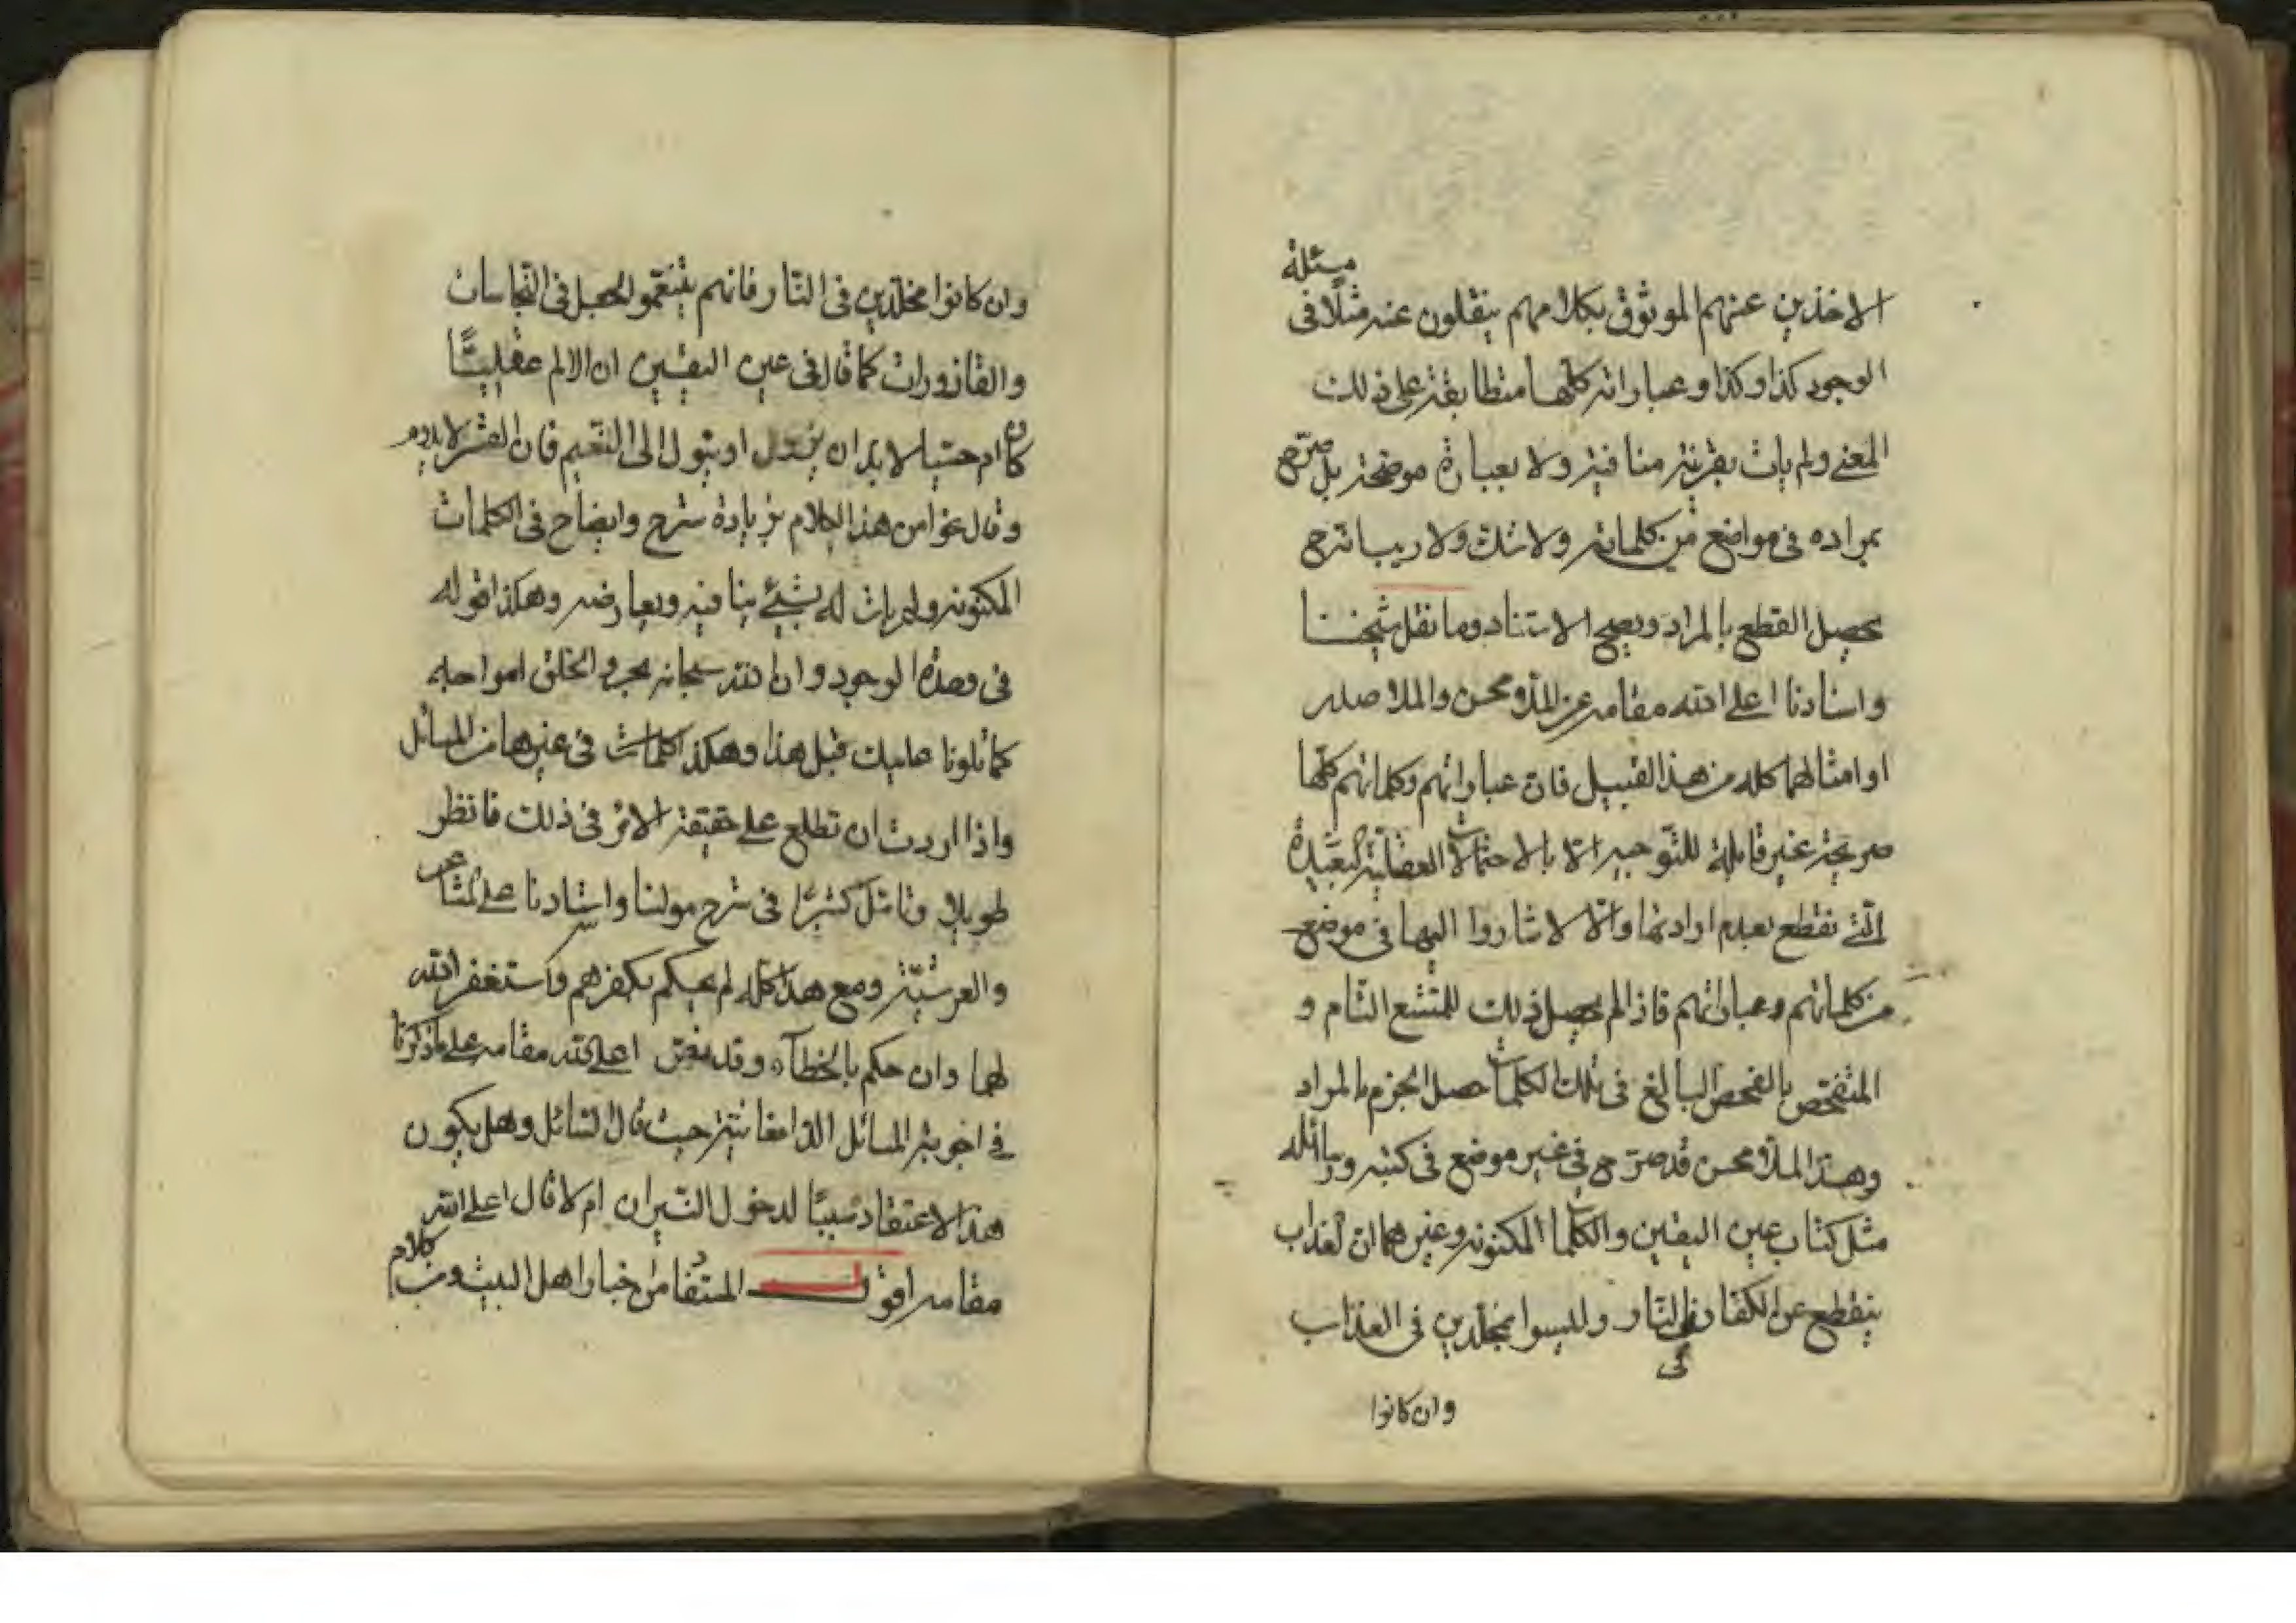 مسئلة
الاخذين عنهم الموثوق بكلامهم ينقلون عنه مثلا فى
الوجود كذا وكذا وعباراته كلها متطابقة على ذلك
المعنى ولم يات بقرينة منافية ولا بعبارة موضحة بل صرّح
بمراده فى مواضع من كلماته ولا شك ولا ريب انه ح
يحصل القطع بالمراد ويصح الاستناد وما نقل شيخنا
واستادنا اعلى الله مقامه عن الملا محسن والملا صدرا
او امثالهما كله من هذا القبيل فان عباراتهم وكلماتهم كلها
صريحة غير قابلة للتوجيه الا بالاحتمالات العقلية البعيدة
التى نقطع بعدم ارادتها والا لاشاروا اليها فى موضع
من كلماتهم وعباراتهم فاذا لم يحصل ذلك للمتتبع التام و
المتفحص بالفحص البالغ فى تلك الكلمات حصل الجزم بالمراد
وهذا الملا محسن قد صرّح فى غير موضع فى كتبه ورسائله
مثل كتاب عين اليقين والكلمات المكنونه وغيرهما ان العذاب
ينقطع عن الكفار فى النار وليسوا مخلدين فى العذاب
وان كانوا
وان كانوا مخلدين فى النار فانهم يتنعمو الجعل فى النجاسات
والقاذورات كما قال فى عين اليقين ان الالم عقليا
كان ام حسيا لابد ان يزول او يئول الى النعيم فان القسر لا يدوم
وقال نحوا من هذا الكلام بزيادة شرح وايضاح فى الكلمات
المكنونه ولم يات له بشيئ ينافيه ويعارضه وهكذا قوله
فى وحدة الوجود وان الله سبحانه بحر والخلق امواجه
كما تلونا عليك قبل هذا وهكذا كلماته فى غيرها من المسائل
واذا اردت ان تطلع على حقيقة الامر فى ذلك فانظر
طويلا وتامّل كثيرا فى شرح مولنا واستادنا على المشاعر
والعرشيّة ومع هذا كله لم يحكم بكفرهم واستغفر الله
لهما وان حكم بالخطآء وقد نص اعلى الله مقامه على ما ذكرنا
فى اجوبة المسائل الدامغانية حيث قال السائل وهل يكون
هذا الاعتقاد سببا لدخول النيران ام لا قال اعلى الله
مقامه اقول المستفاد من اخبار اهل البيت ومن كلام